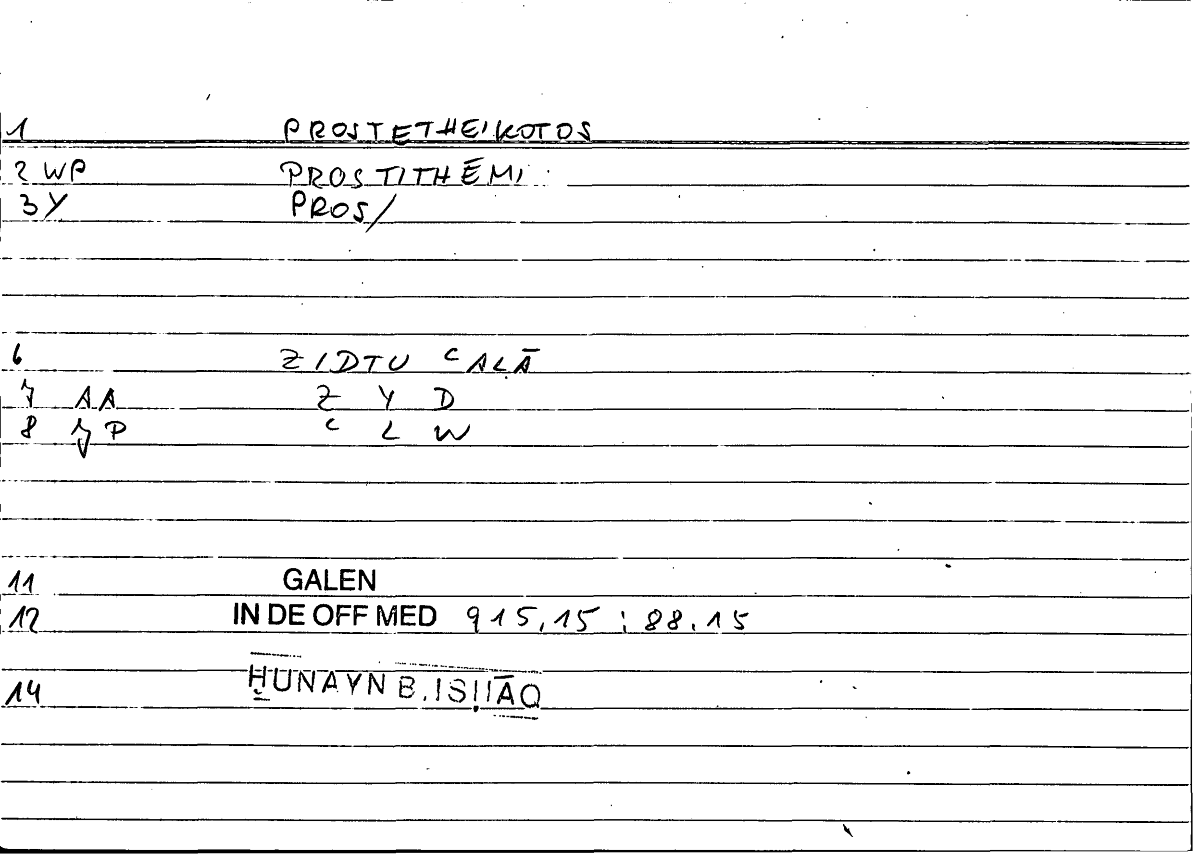 1 PROSTETHEIKOTOS
2 WP PROSTITHĒMI
3 Y PROS/
6 ZIDTU ᶜALĀ
7 AA Z Y D
8 JP ᶜ L W
11 GALEN
12 IN DE OFF MED 915,15 : 88.15
14 ḤUNAYN B. ISḤĀQ